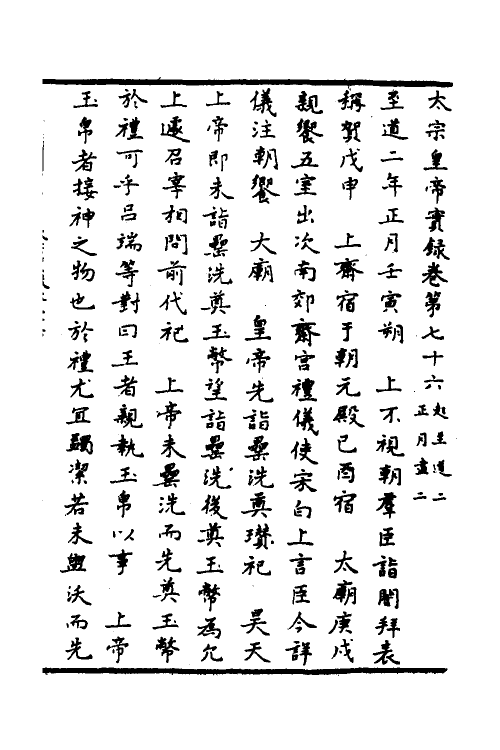 太宗皇帝實錄卷第七十六起至道二正月盡二
至道二年正月壬寅朔　上不視朝羣臣詣閤拜表
稱賀戊申　上齋宿于朝元殿己酉宿　太廟庚戌
親饗五室出次南郊齋宮禮儀使宋白上言臣今詳
儀注朝饗　太廟　皇帝先詣罍洗奠瓚祀　昊天
上帝即未詣罍洗奠玉幣望詣罍洗後奠玉幣為允
上遽召宰相問前代祀　上帝未罍洗而先奠玉幣
於禮可乎呂端等對曰王者親執玉帛以事　上帝
玉帛者接神之物也於禮尤宜蠲潔若未盥沃而先